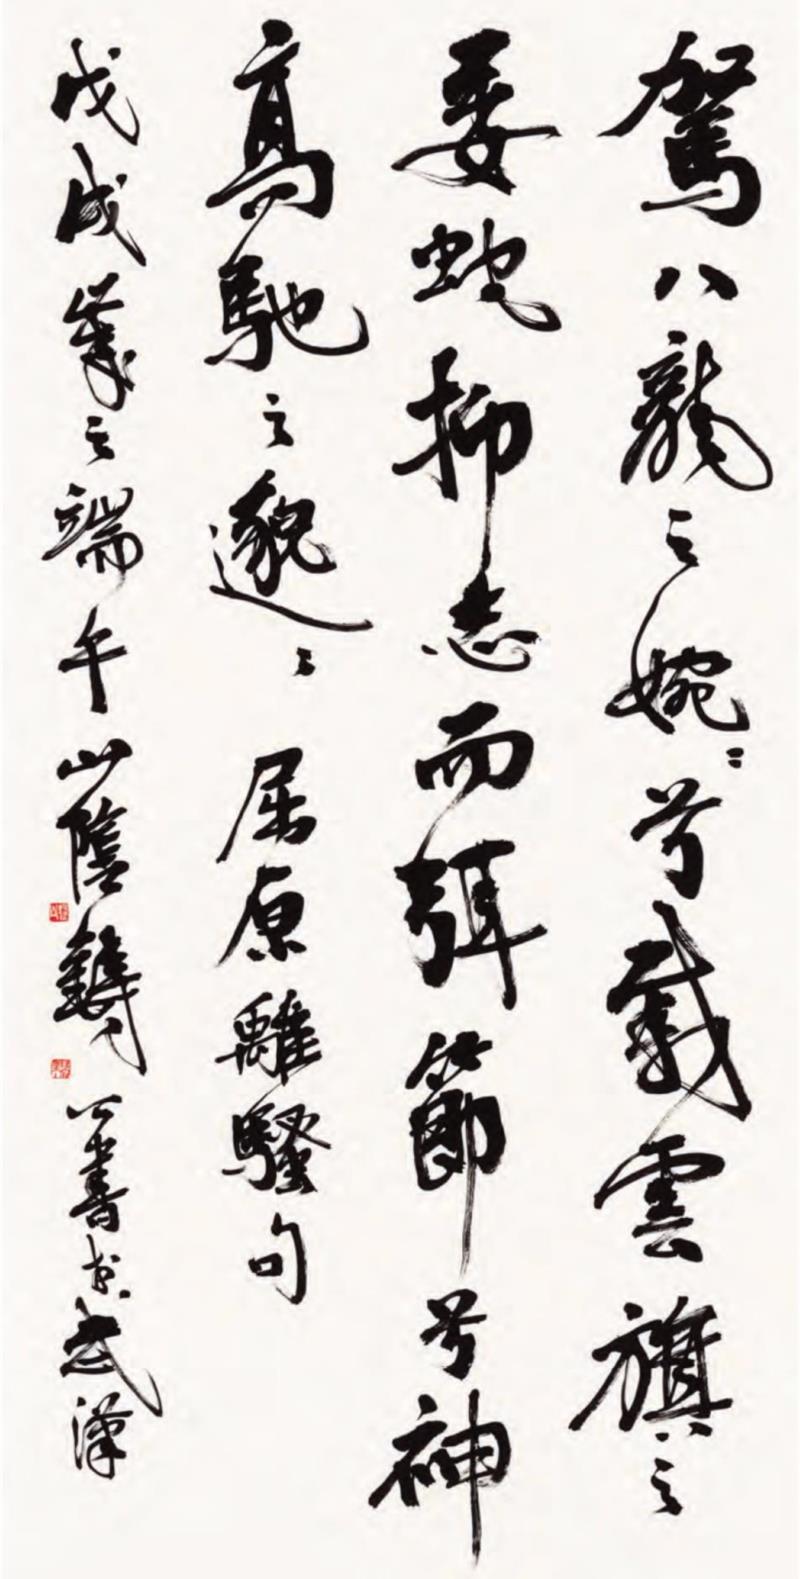 駕八龍之婉〻兮載雲旗之
委蛇抑志而弭節兮神
高馳之邈〻 屈原離騷句
戊戌歲之端午山陰 書於武漢